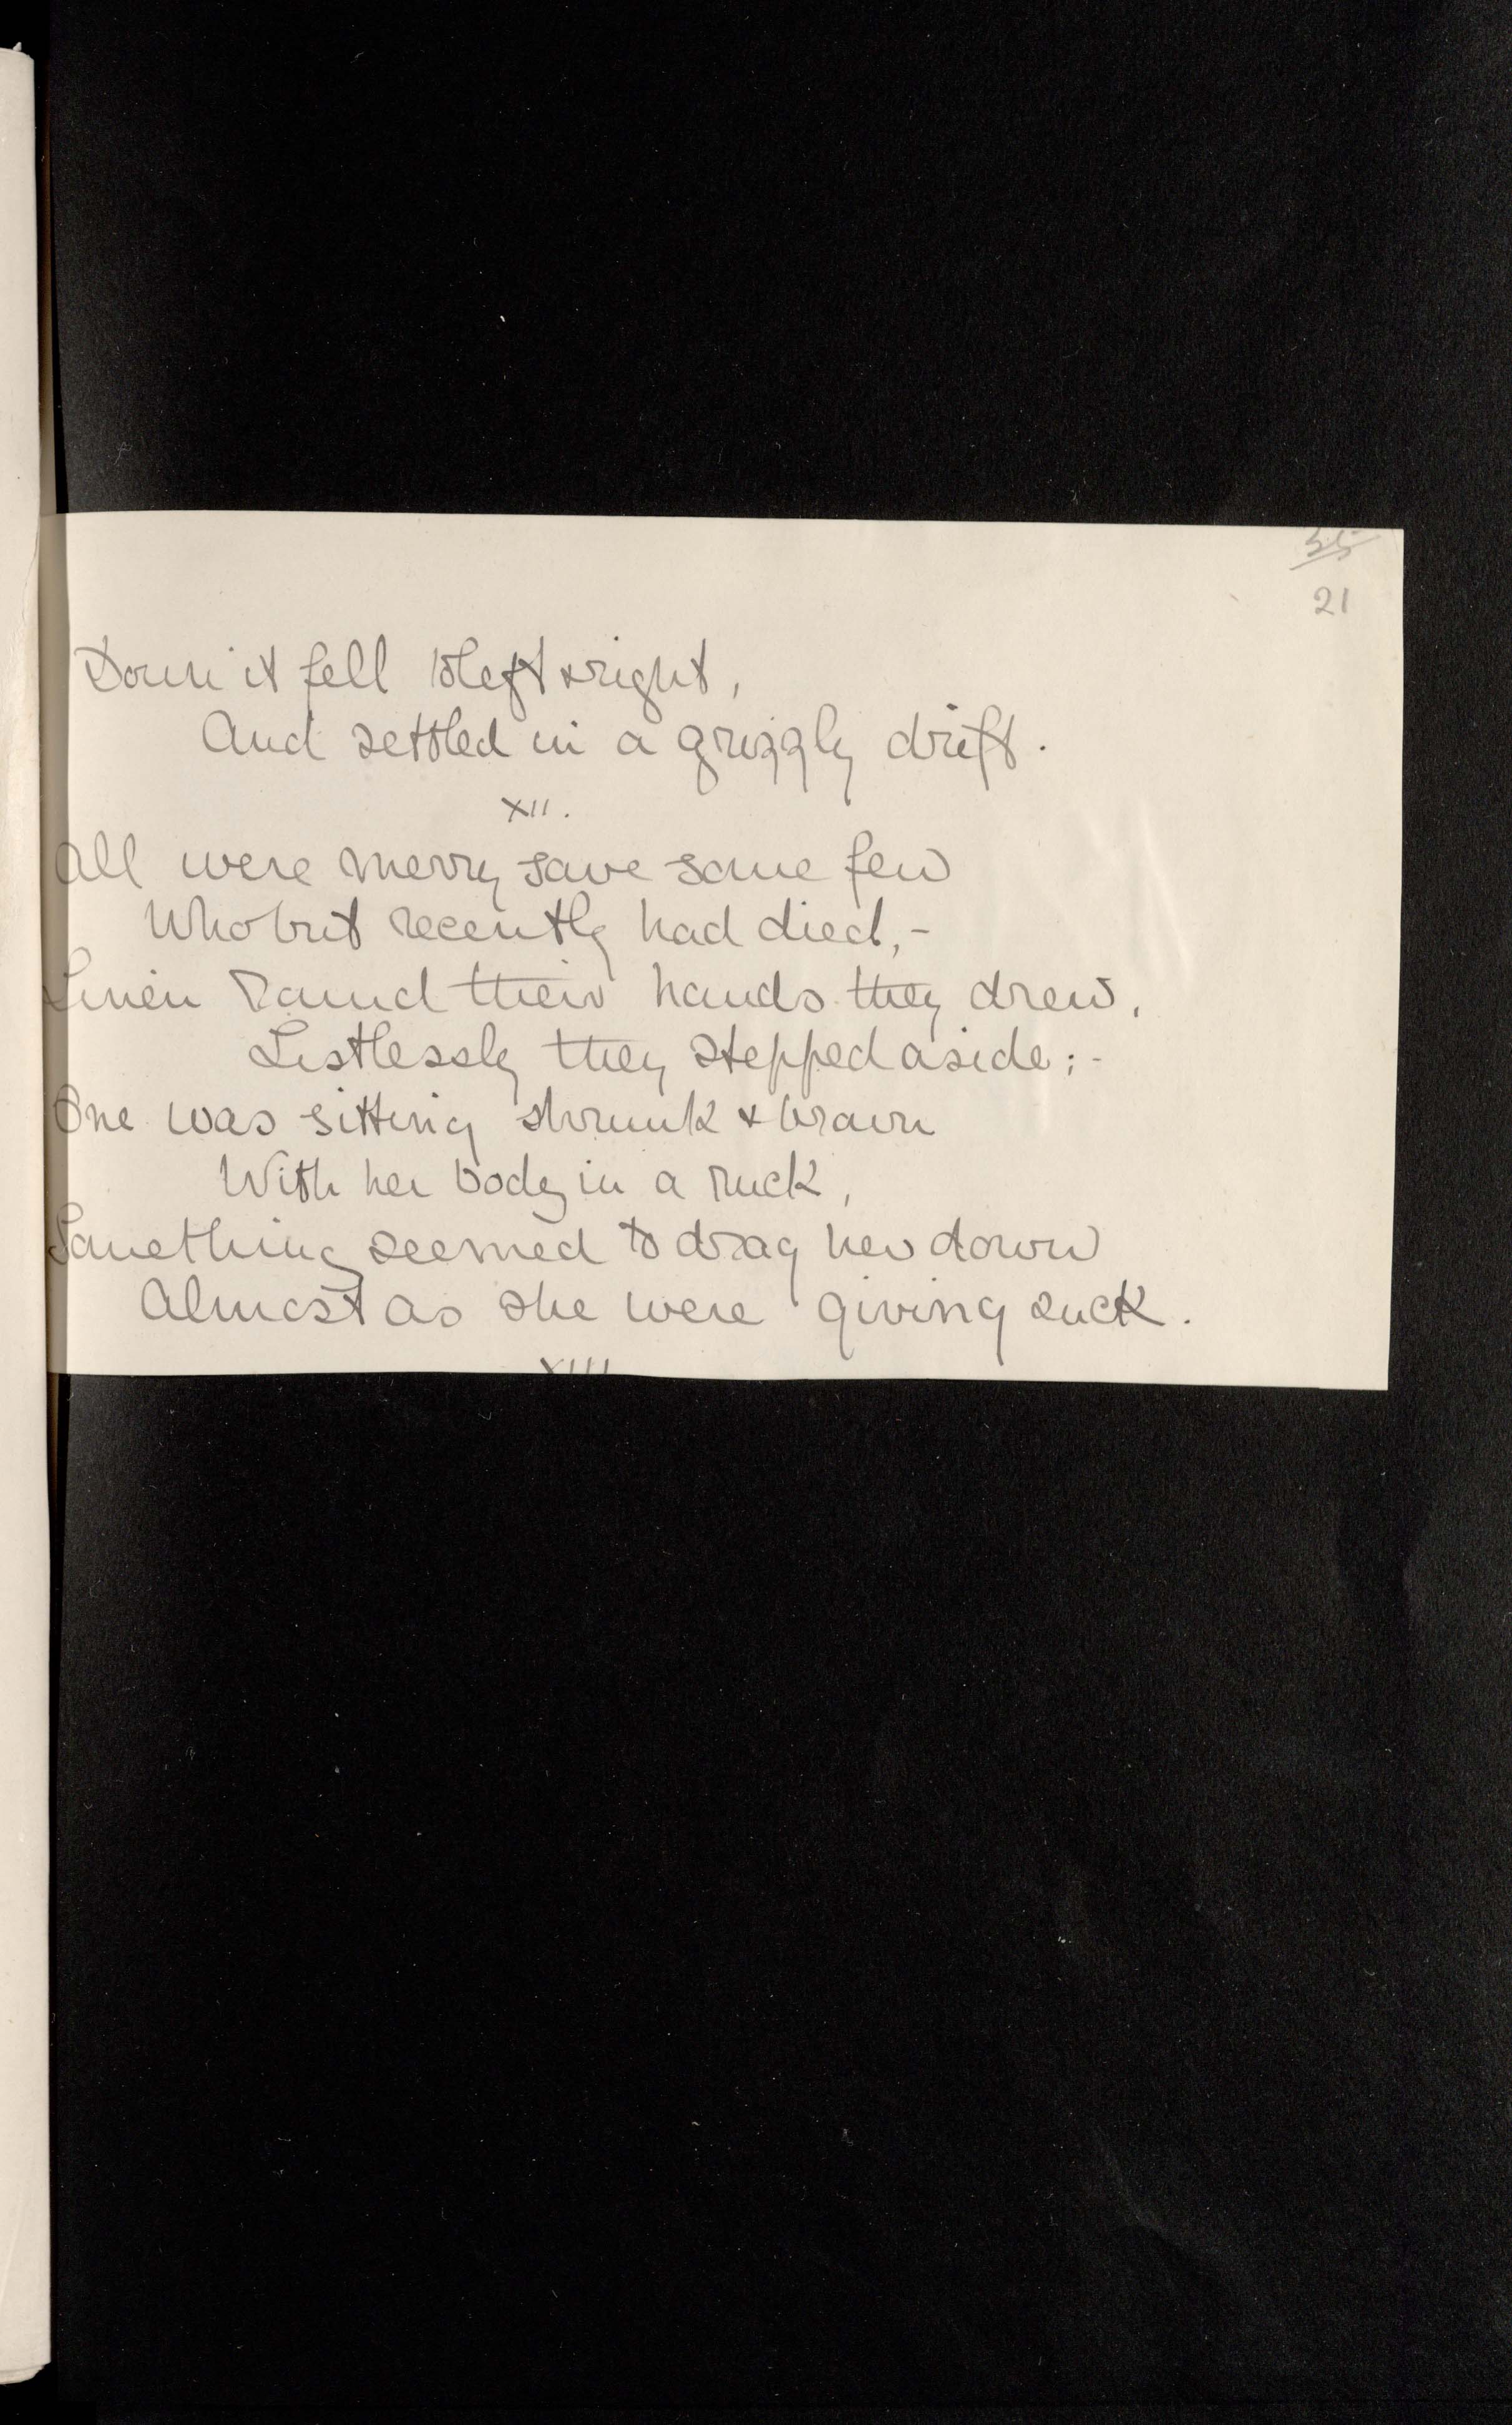 55
21
Down it fell to left & right,
And settled in a grizzly drift.
XII.
All were merry save some few
Who but recently had died,-
Linen round their hands they drew,
Listlessly they stepped aside;-
One was sitting shrunk & brown
With her body in a ruck,
Something seemed to drag her down
Almost as she were giving suck.
XIII